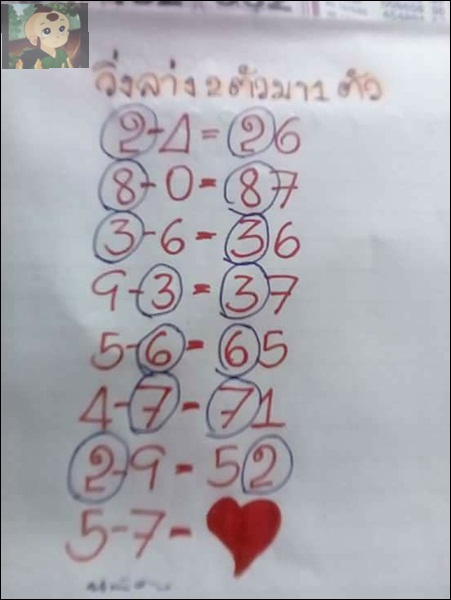 วิ่งล่าง 2 ตัวมา 1 ตัว
2-4=26
8-0=87
3-6=36
9-3=37
5-6=65
4-7=71
2-9=52
5-7=